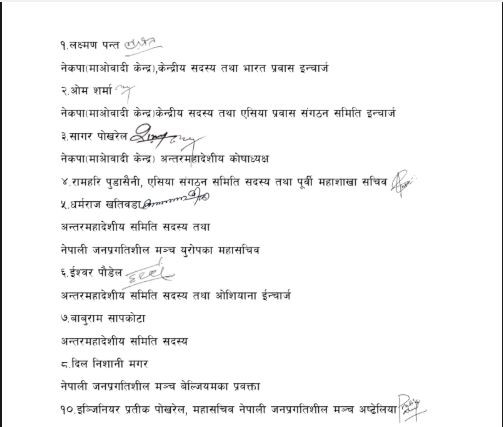 १.लक्ष्मण पन्त
नेकपा(माओवादी केन्द्र),केन्द्रीय सदस्य तथा भारत प्रवास इन्चार्ज
२.ओम शर्मा
नेकपा(माओवादी केन्द्र)केन्द्रीय सदस्य तथा एसिया प्रवास संगठन समिति इन्चार्ज
३.सागर पोखरेल
नेकपा(माओवादी केन्द्र) अन्तरमहादेशीय कोषाध्यक्ष
४.रामहरि पुडासैनी, एसिया संगठन समिति सदस्य तथा पूर्वी महाशाखा सचिव
५.धर्मराज खतिवडा
अन्तरमहादेशीय समिति सदस्य तथा
नेपाली जनप्रगतिशील मञ्च युरोपका महासचिव
६.ईश्वर पौडेल
अन्तरमहादेशीय समिति सदस्य तथा ओशियाना ईन्चार्ज
७.बाबुराम सापकोटा
अन्तरमहादेशीय समिति सदस्य
८.दिल निशानी मगर
नेपाली जनप्रगतिशील मञ्च बेल्जियमका प्रवक्ता
१०.इञ्जिनियर प्रतीक पोखरेल, महासचिव नेपाली जनप्रगतिशील मञ्च अष्ट्रेलिया